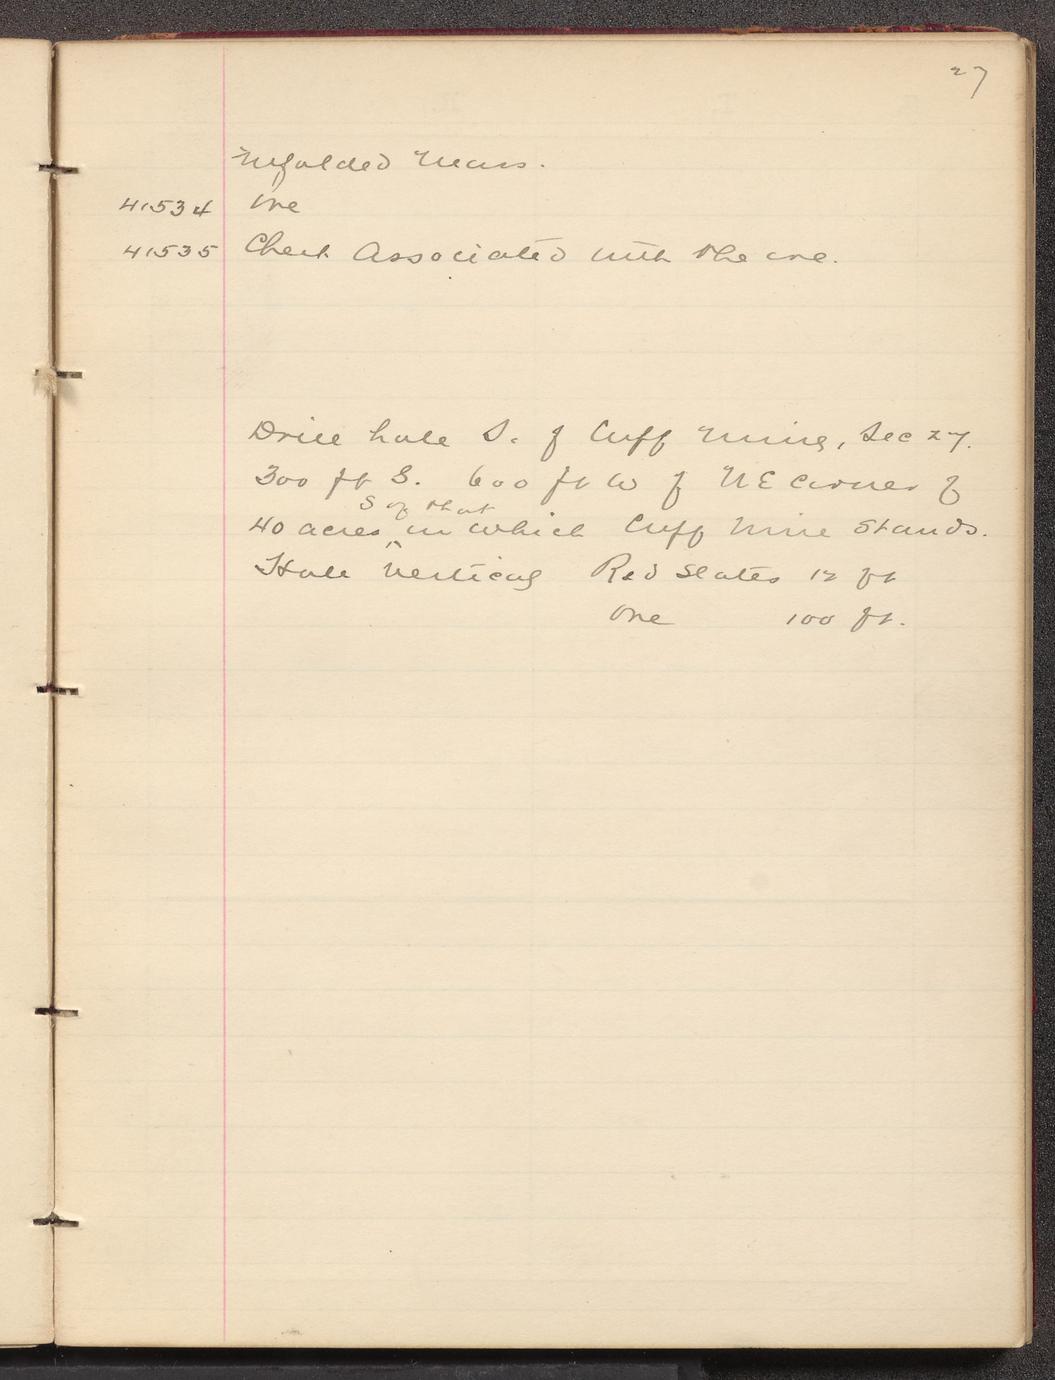 27
infolded mass.
41534 Ore
41535 Chert Associated with the ore.
Drill hole S. of Cuff Mine, Sec 27.
300 ft S. 600 ft W of NE Corner of
S of that
40 acres in which Cuff Mine Stands.
Hole Vertical Red Slates 12 ft
Ore 100 ft.